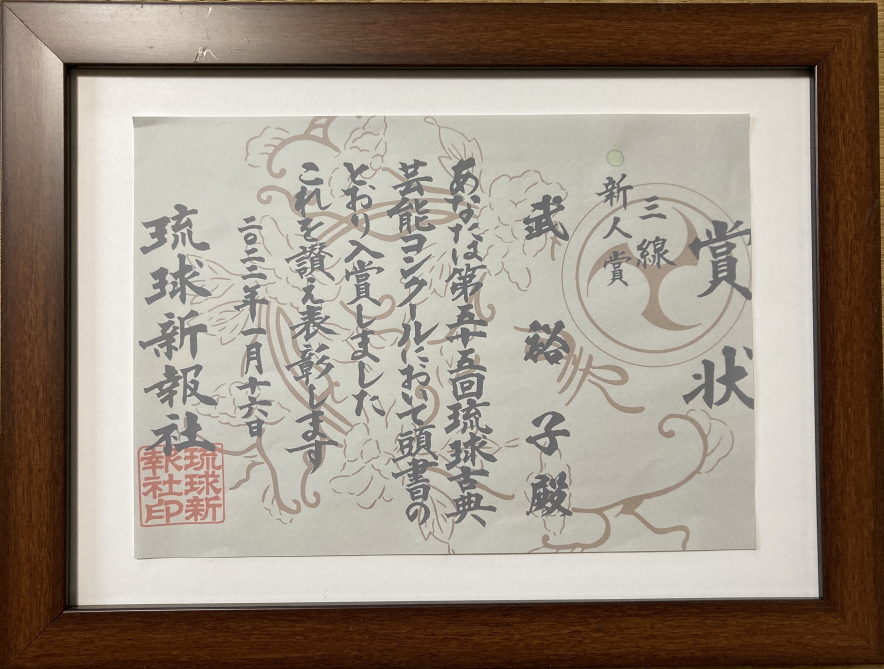 賞状
三線
新人賞
武裕子殿
あなたは第五十五回琉球古典
芸能コンクールにおいて頭書の
とおり入賞しました
これを讃え表彰します
二〇二二年一月十六日
琉球新報社
琉球新
報社印